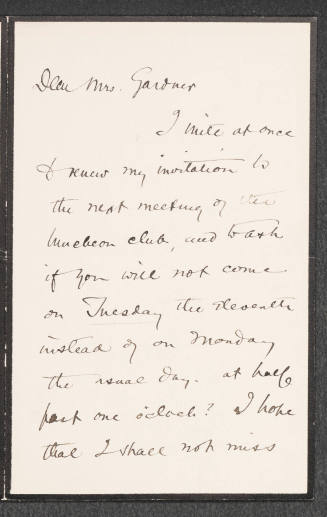 Dear Mrs. Gardner
I write at once
to renew my invitation to
the next meeting of the
luncheon club, and to ask
if you will not come
on Tuesday the eleventh
instead of on Monday
the usual day. at half
past one o'clock? I hope
that I shall not miss